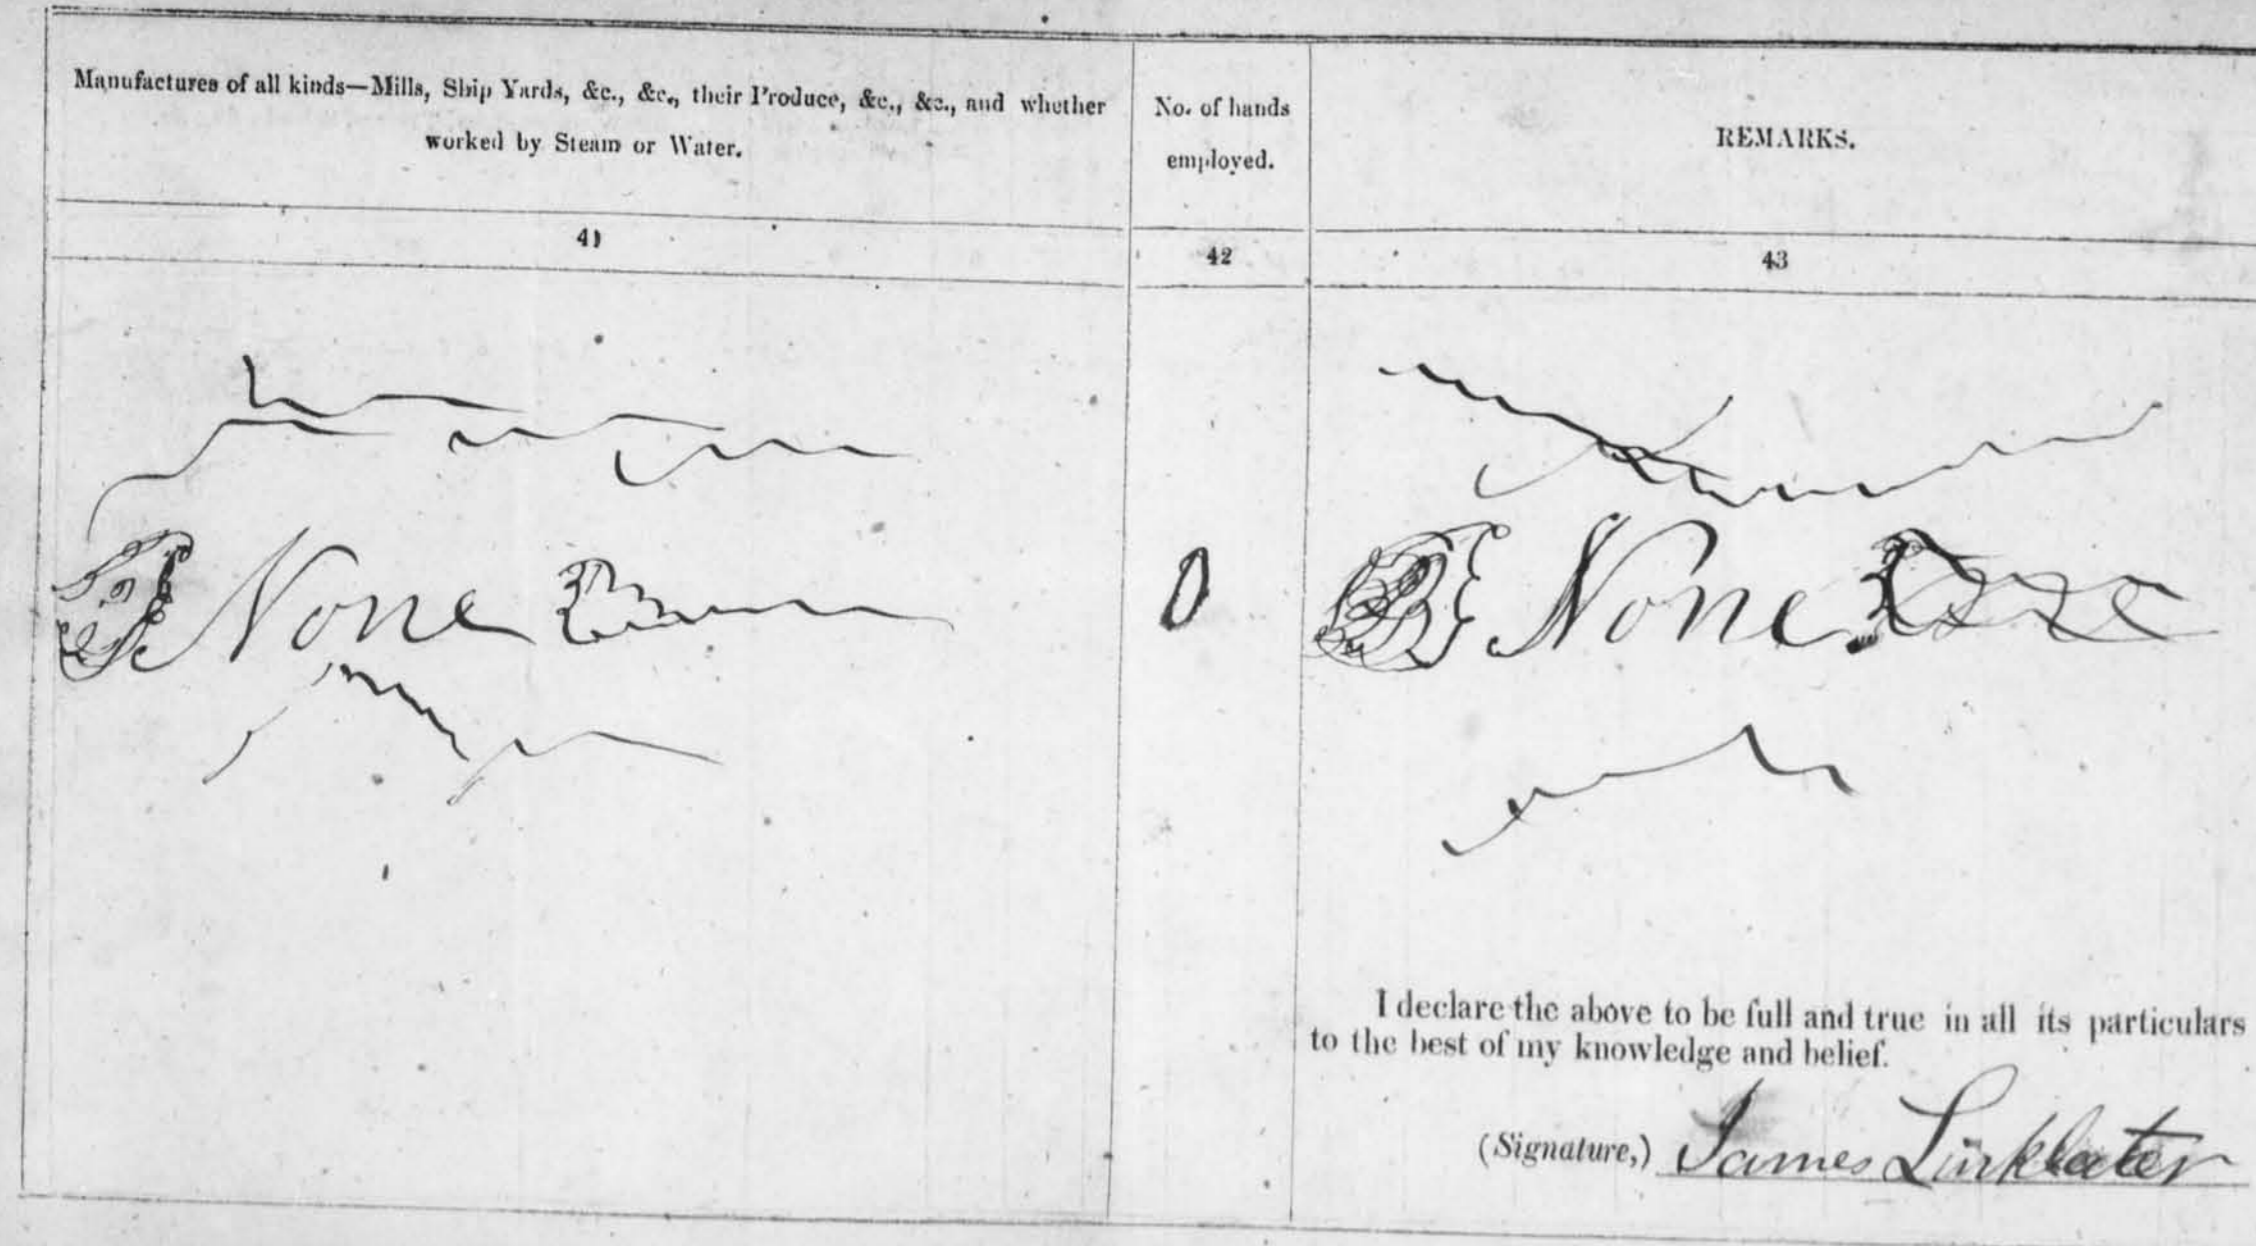 Manufactures of all kinds—Mills, Ship Yards, &c., &c., their Produce, &c., &c., and whether
worked by Steam or Water.
No. of hands
employed.
REMARKS.
41
42
43
None
0
None
I declare the above to be full and true in all its particulars
to the best of my knowledge and belief.
(Signature,) James Linklater